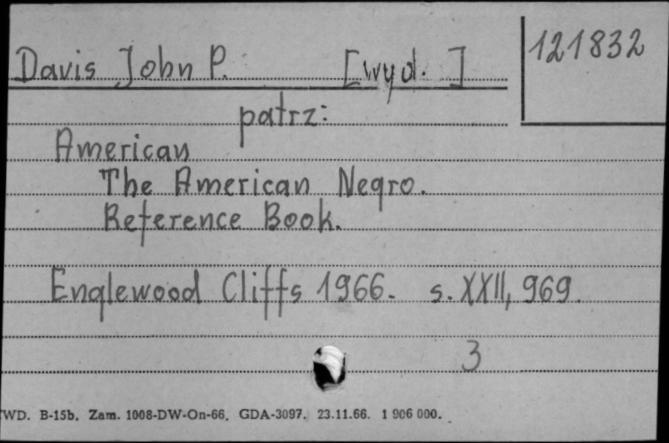 121832
Davis John P. [wyd. ]
patrz:
American
The American Negro.
Reference Book.
Englewood Cliffs 1966. s. XXII, 969.
3
WD. B-15b. Zam. 1008-DW-On-66. GDA-3097. 23.11.66. 1 906 000.